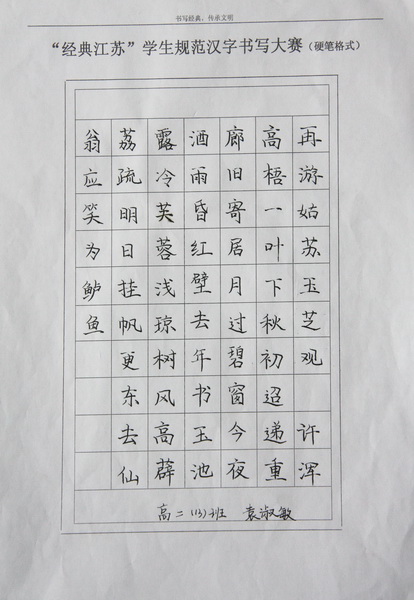 书写经典，传承文明
“经典江苏”学生规范汉字书写大赛（硬笔格式）
再游姑苏玉芝观 许浑
高梧一叶下秋初迢递重
廊旧寄居月过碧窗今夜
酒雨昏红壁去年书玉池
露冷芙蓉浅琼树风高薜
荔疏明日挂帆更东去仙
翁应笑为鲈鱼
高二（13）班 袁淑敏